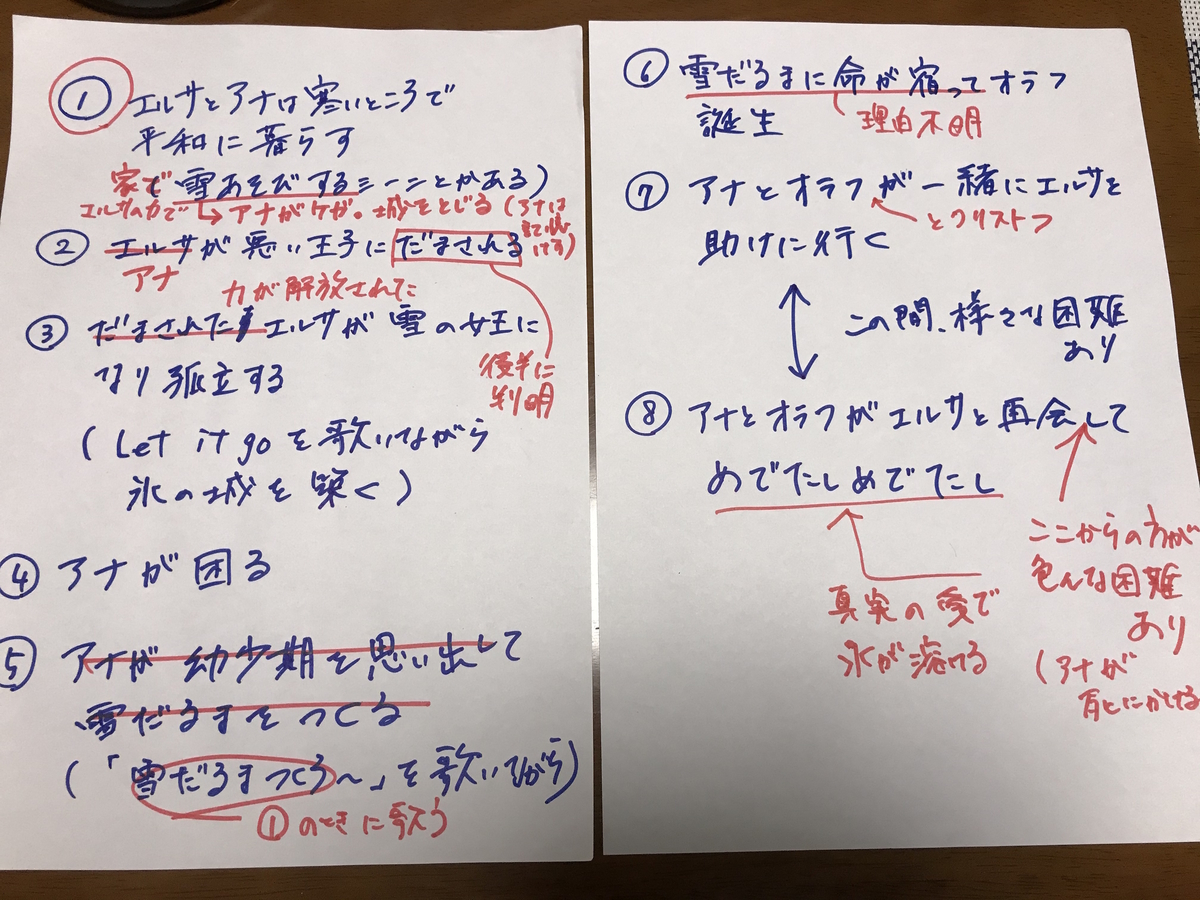 ① エルサとアナは寒いところで
平和に暮らす
家で
(雪あそびするシーンとかある)
エルサの力で
アナがケガ。城をとじる(アナは
② エルサが悪い王子にだまされる
アナ
力が解放された
③ だまされたエルサが雪の女王に
なり孤立する
後半に
判明
(Let it goを歌いながら
氷の城を築く)
④ アナが困る
⑤ アナが幼少期を思い出して
雪だるまをつくる
(「雪だるまつくろ〜」を歌いながら)
①のときに歌う
⑥ 雪だるまに命が宿ってオラフ
誕生
理由不明
⑦ アナとオラフが一緒にエルサを
とクリストフ
助けに行く
この間、様々な困難
あり
⑧ アナとオラフがエルサと再会して
めでたしめでたし
ここからの方が
色んな困難
あり
(アナが
死にかける
真実の愛で
氷が溶ける